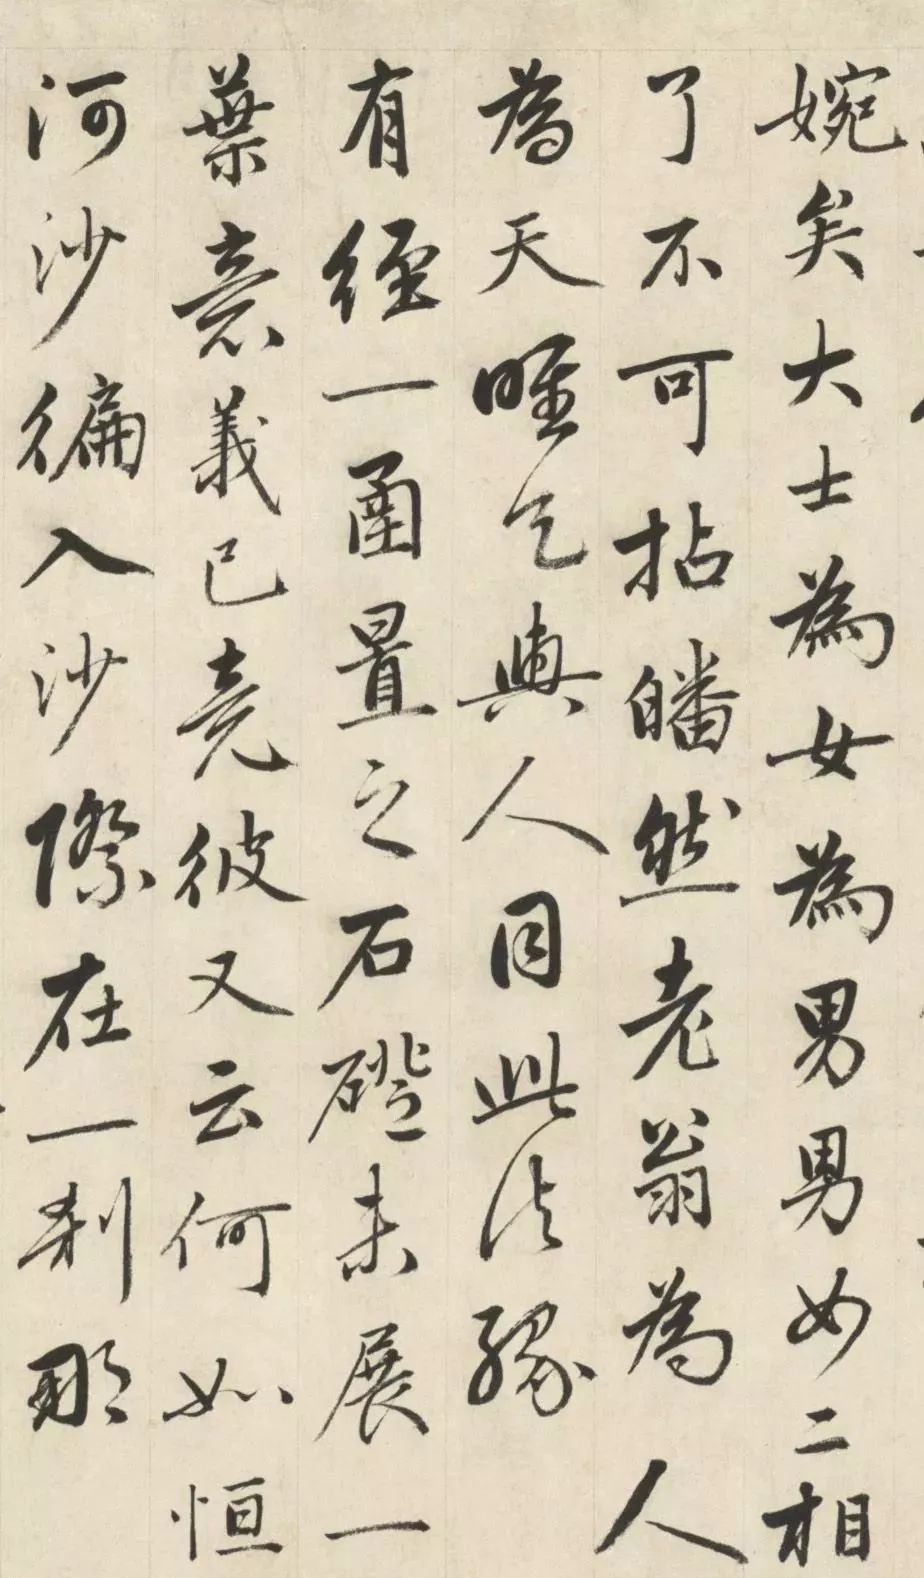 婉矣大士為女為男男女二相
了不可拈皤然老翁為人
為天唯乞與人同此法緣
有經一函置之石磴未展一
葉意義已竟彼又云何如恒
河沙徧入沙際在一刹那